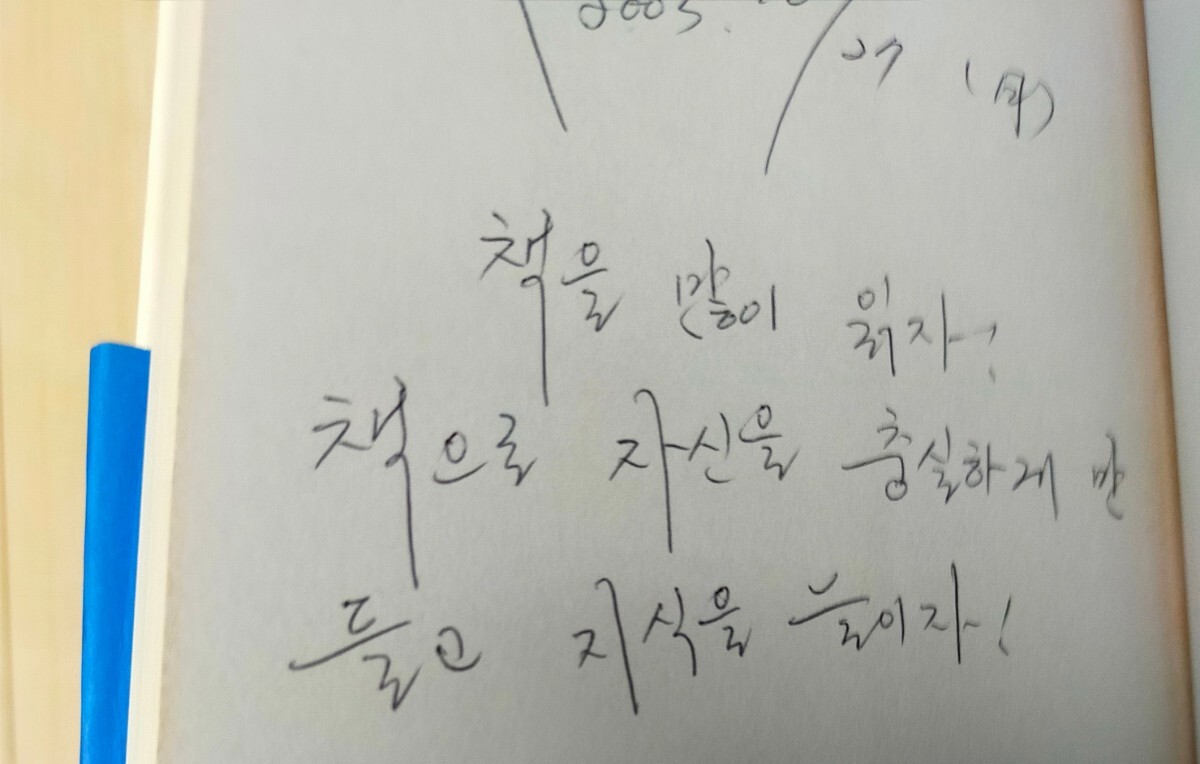 2003.
27
책을 많이 읽자!
책으로 자신을 충실하게 만
들고 지식을 늘이자!